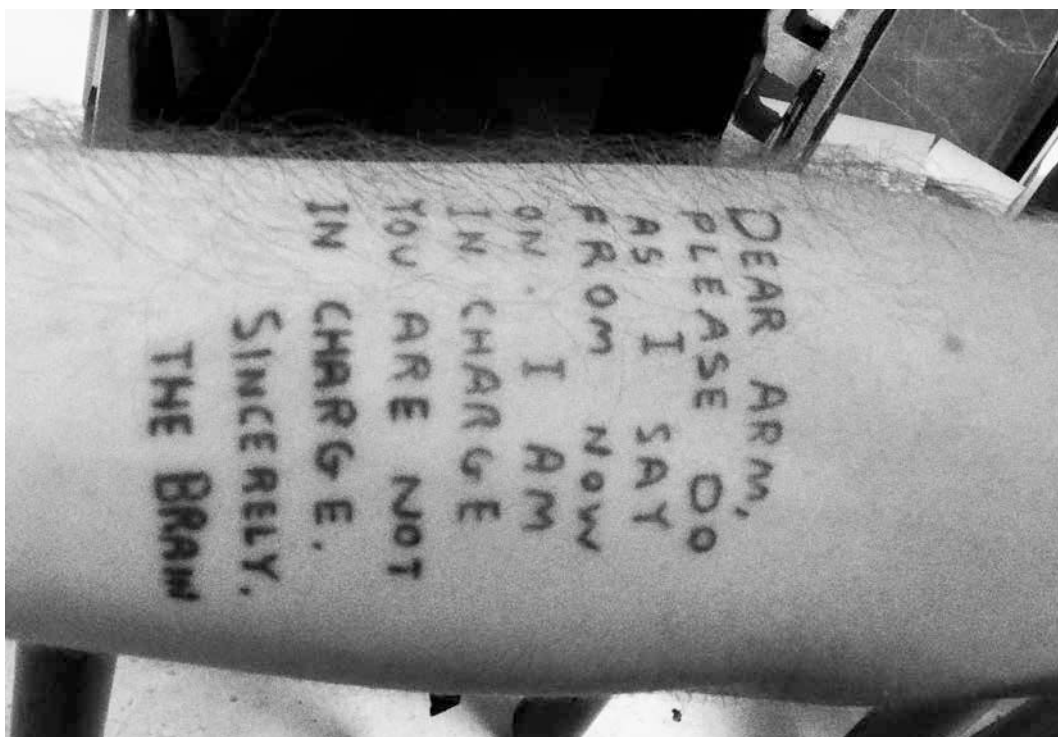 DEAR ARM,
PLEASE DO
AS I SAY
FROM NOW
ON. I AM
IN CHARGE
YOU ARE NOT
IN CHARGE.
SINCERELY.
THE BRAIN